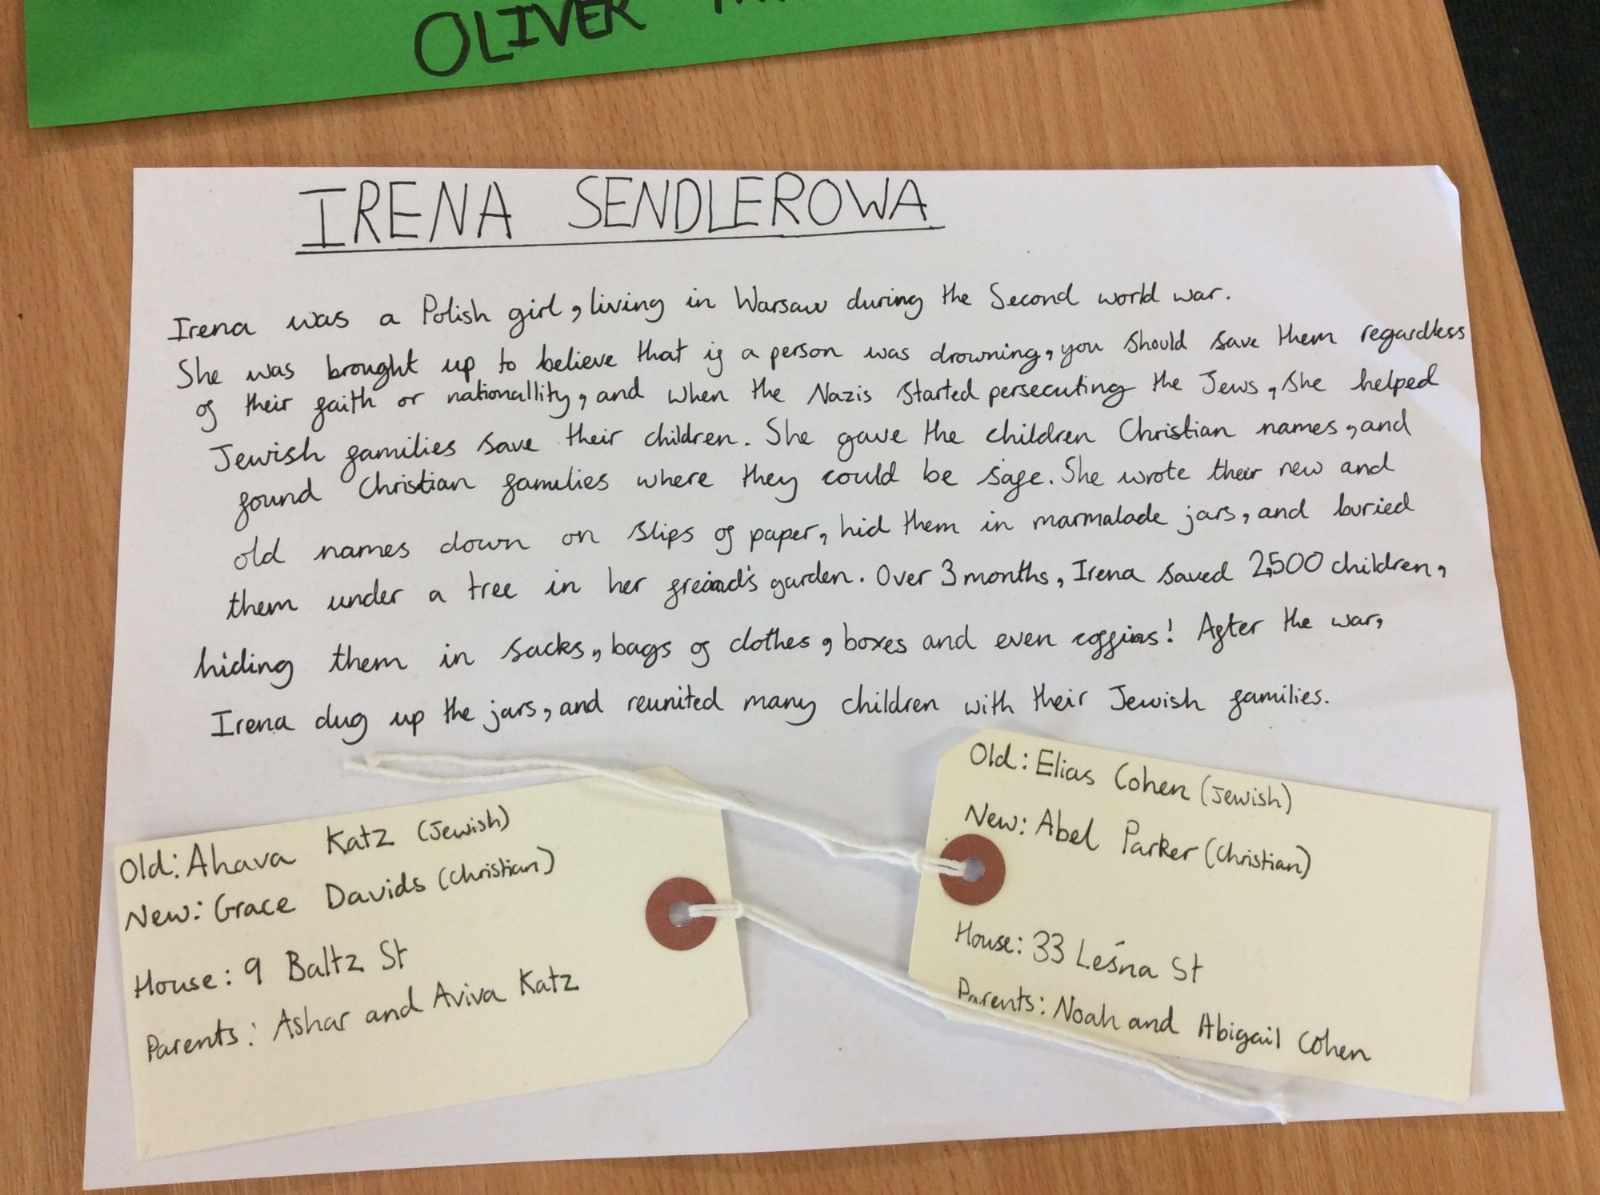 OLIVER
IRENA SENDLEROWA
Irena was a Polish girl, living in Warsaw during the Second world war.
She was brought up to believe that if a person was drowning, you should save them regardless
of their faith or nationallity, and when the Nazis started persecuting the Jews, she helped
Jewish families save their children. She gave the children Christian names, and
found Christian families where they could be safe. She wrote their new and
old names down on slips of paper, hid them in marmalade jars, and buried
them under a tree in her freind's garden. Over 3 months, Irena saved 2,500 children,
hiding them in sacks, bags of clothes, boxes and even coffins! After the war,
Irena dug up the jars, and reunited many children with their Jewish families.
Old: Ahava Katz (Jewish)
New: Grace Davids (Christian)
House: 9 Baltz St
Parents: Ashar and Aviva Katz
Old: Elias Cohen (Jewish)
New: Abel Parker (Christian)
House: 33 Leśna St
Parents: Noah and Abigail Cohen